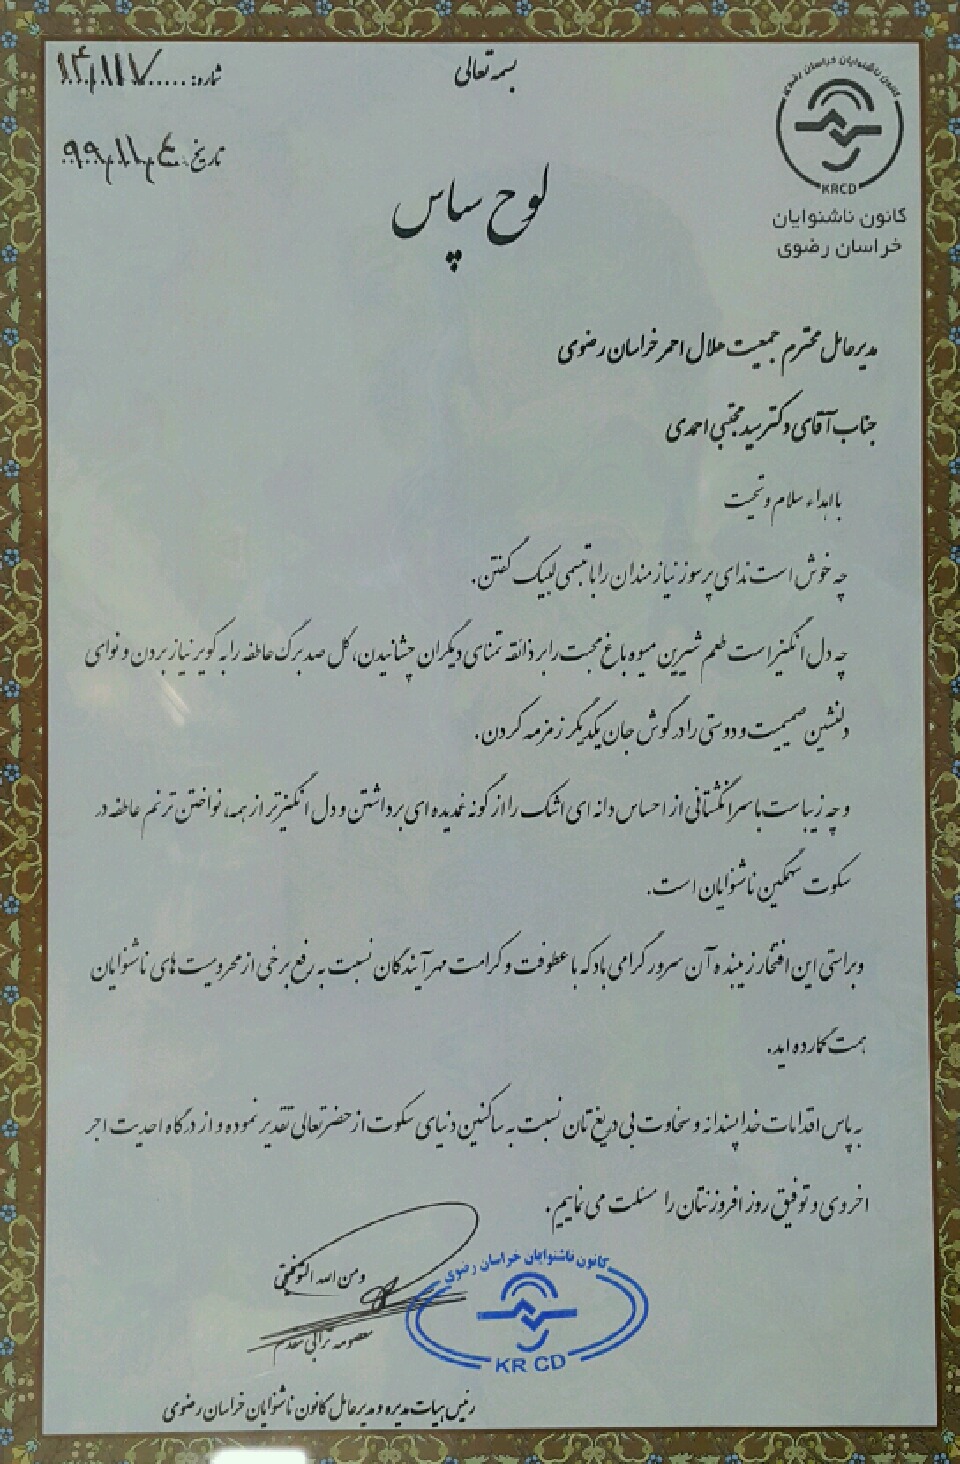 بسمه تعالی
شماره: ۱۴۰۱۱۱۷
تاریخ: ۹۹،۱۱،۰۴
کانون ناشنوایان خراسان رضوی
KRCD
کانون ناشنوایان
خراسان رضوی
لوح سپاس
مدیرعامل محترم جمعیت هلال احمر خراسان رضوی
جناب آقای دکتر سید مجتبی احمدی
با اهداء سلام و تحیت
چه خوش است ندای پرسوز نیازمندان را با تبسمی لبیک گفتن.
چه دل انگیز است طعم شیرین میوه باغ محبت را بر ذائقه تمنای دیگران چشانیدن، گل صد برگ عاطفه را به کویر نیاز بردن و نوای
دلنشین صمیمیت و دوستی را در گوش جان یکدیگر زمزمه کردن.
و چه زیباست با سرانگشتانی از احساس دانه ای اشک را از گونه غمدیده ای برداشتن و دل انگیزتر از همه، نواختن ترنم عاطفه در
سکوت سهمگین ناشنوایان است.
وبراستی این افتخار زیبنده آن سرور گرامی باد که با عطوفت و کرامت مهرآیندگان نسبت به رفع برخی از محرومیت های ناشنوایان
همت گمارده اید.
به پاس اقدامات خداپسندانه و سخاوت بی دریغ تان نسبت به ساکنین دنیای سکوت از حضرتعالی تقدیر نموده و از درگاه احدیت اجر
اخروی و توفیق روز افزونتان را مسئلت می نماییم.
ومن الله التوفیق
معصومه ترابی مقدم
کانون ناشنوایان خراسان رضوی
KR CD
رئیس هیات مدیره و مدیرعامل کانون ناشنوایان خراسان رضوی